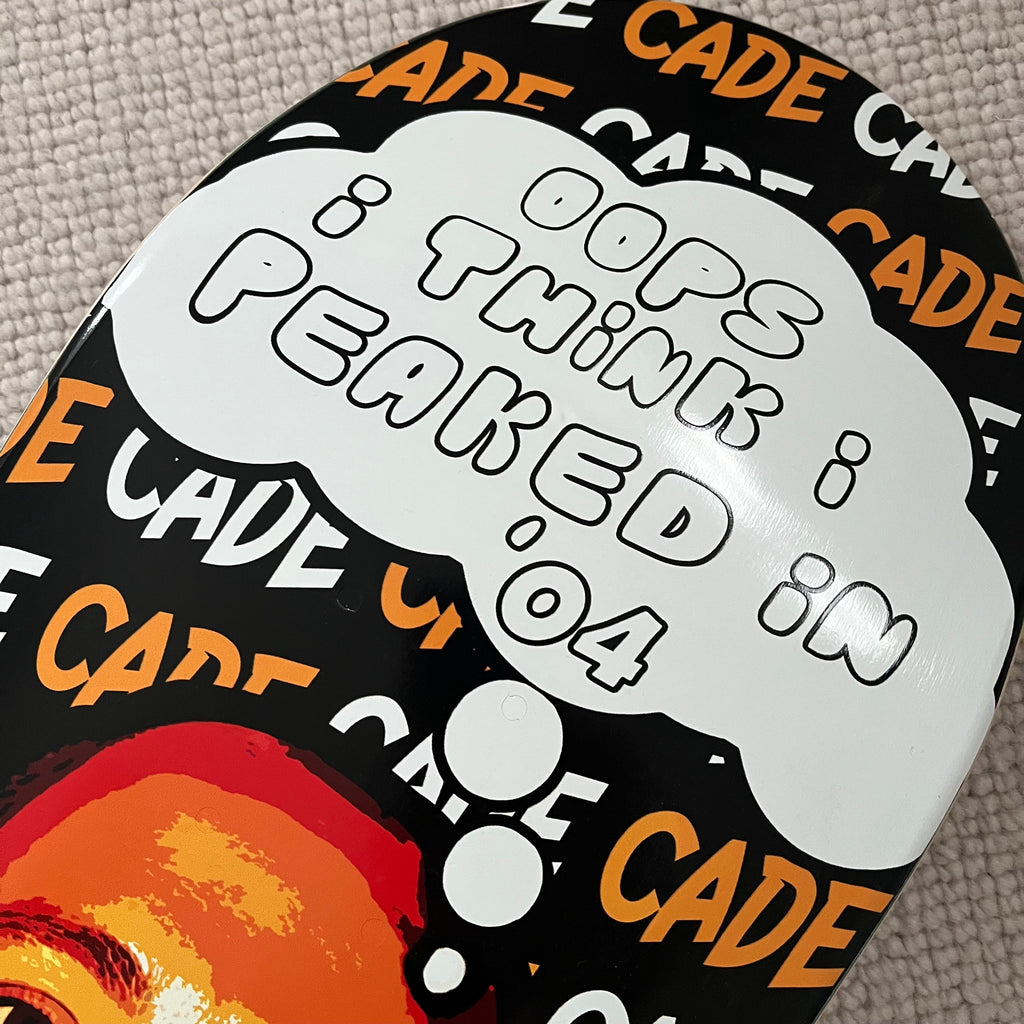 CADE CA
CADE CADE CADE
OOPS
i THiNK i
PEAKED iN
'04
DE CADE
CADE CADE CADE